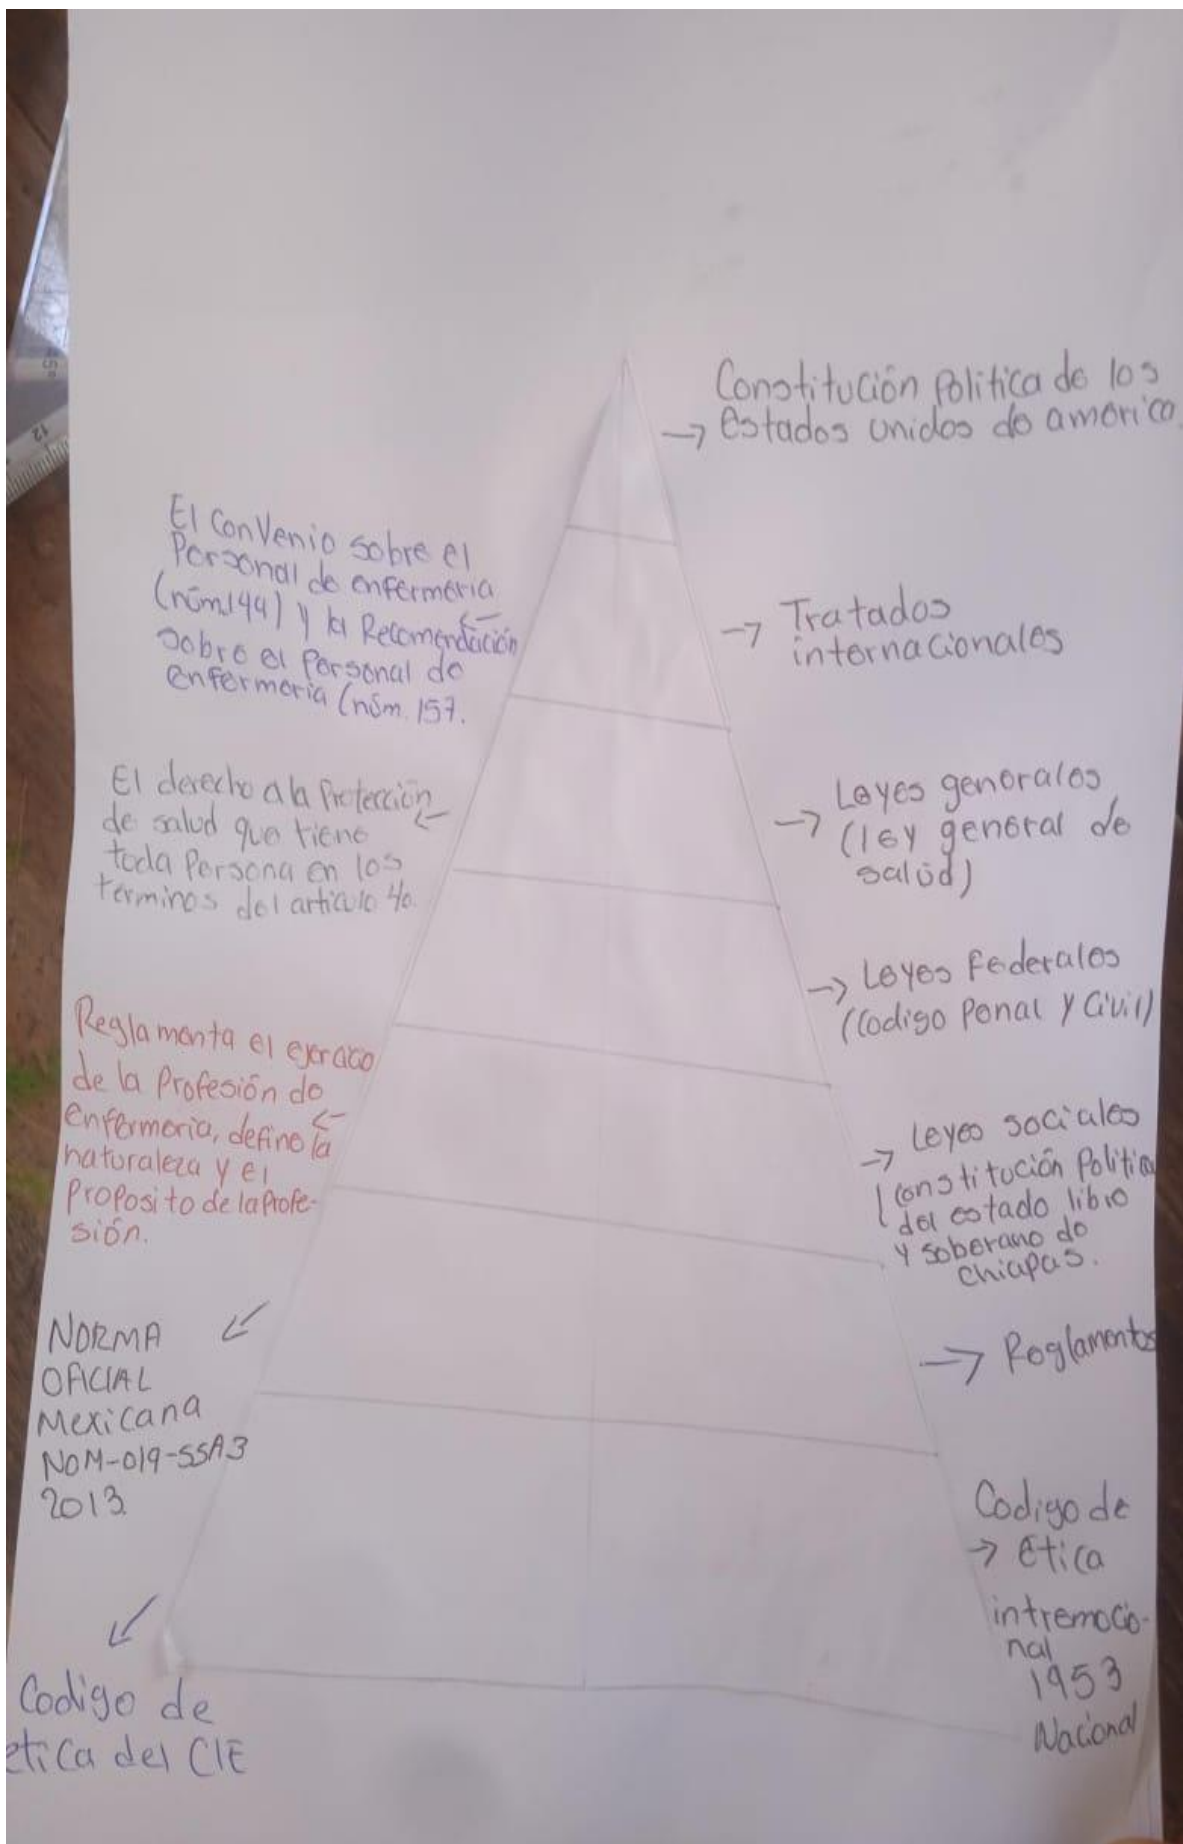 Constitución Politica de los
→ estados unidos de america
El Convenio sobre el
Personal de enfermeria
(núm149) y la Recomendación
sobre el Personal de
enfermeria (núm. 157.
→ Tratados
internacionales
El derecho a la Protección
de salud que tiene
toda Persona en los
terminos del articulo 4o.
→ Leyes generales
(ley general de
salúd)
→ Leyes Federales
(Codigo Penal y Civil)
Reglamenta el
de la Profesión de
enfermeria, define la
naturaleza y el
Proposito de la Profe-
sión.
→ Leyes sociales
Constitución Politica
del estado libre
y soberano de
Chiapas.
NORMA
OFICIAL
Mexicana
NOM-019-SSA3
2013.
→ Reglamentos
Codigo de
→ Etica
nal
1953
Nacional
Codigo de
etica del CIE
45°
12